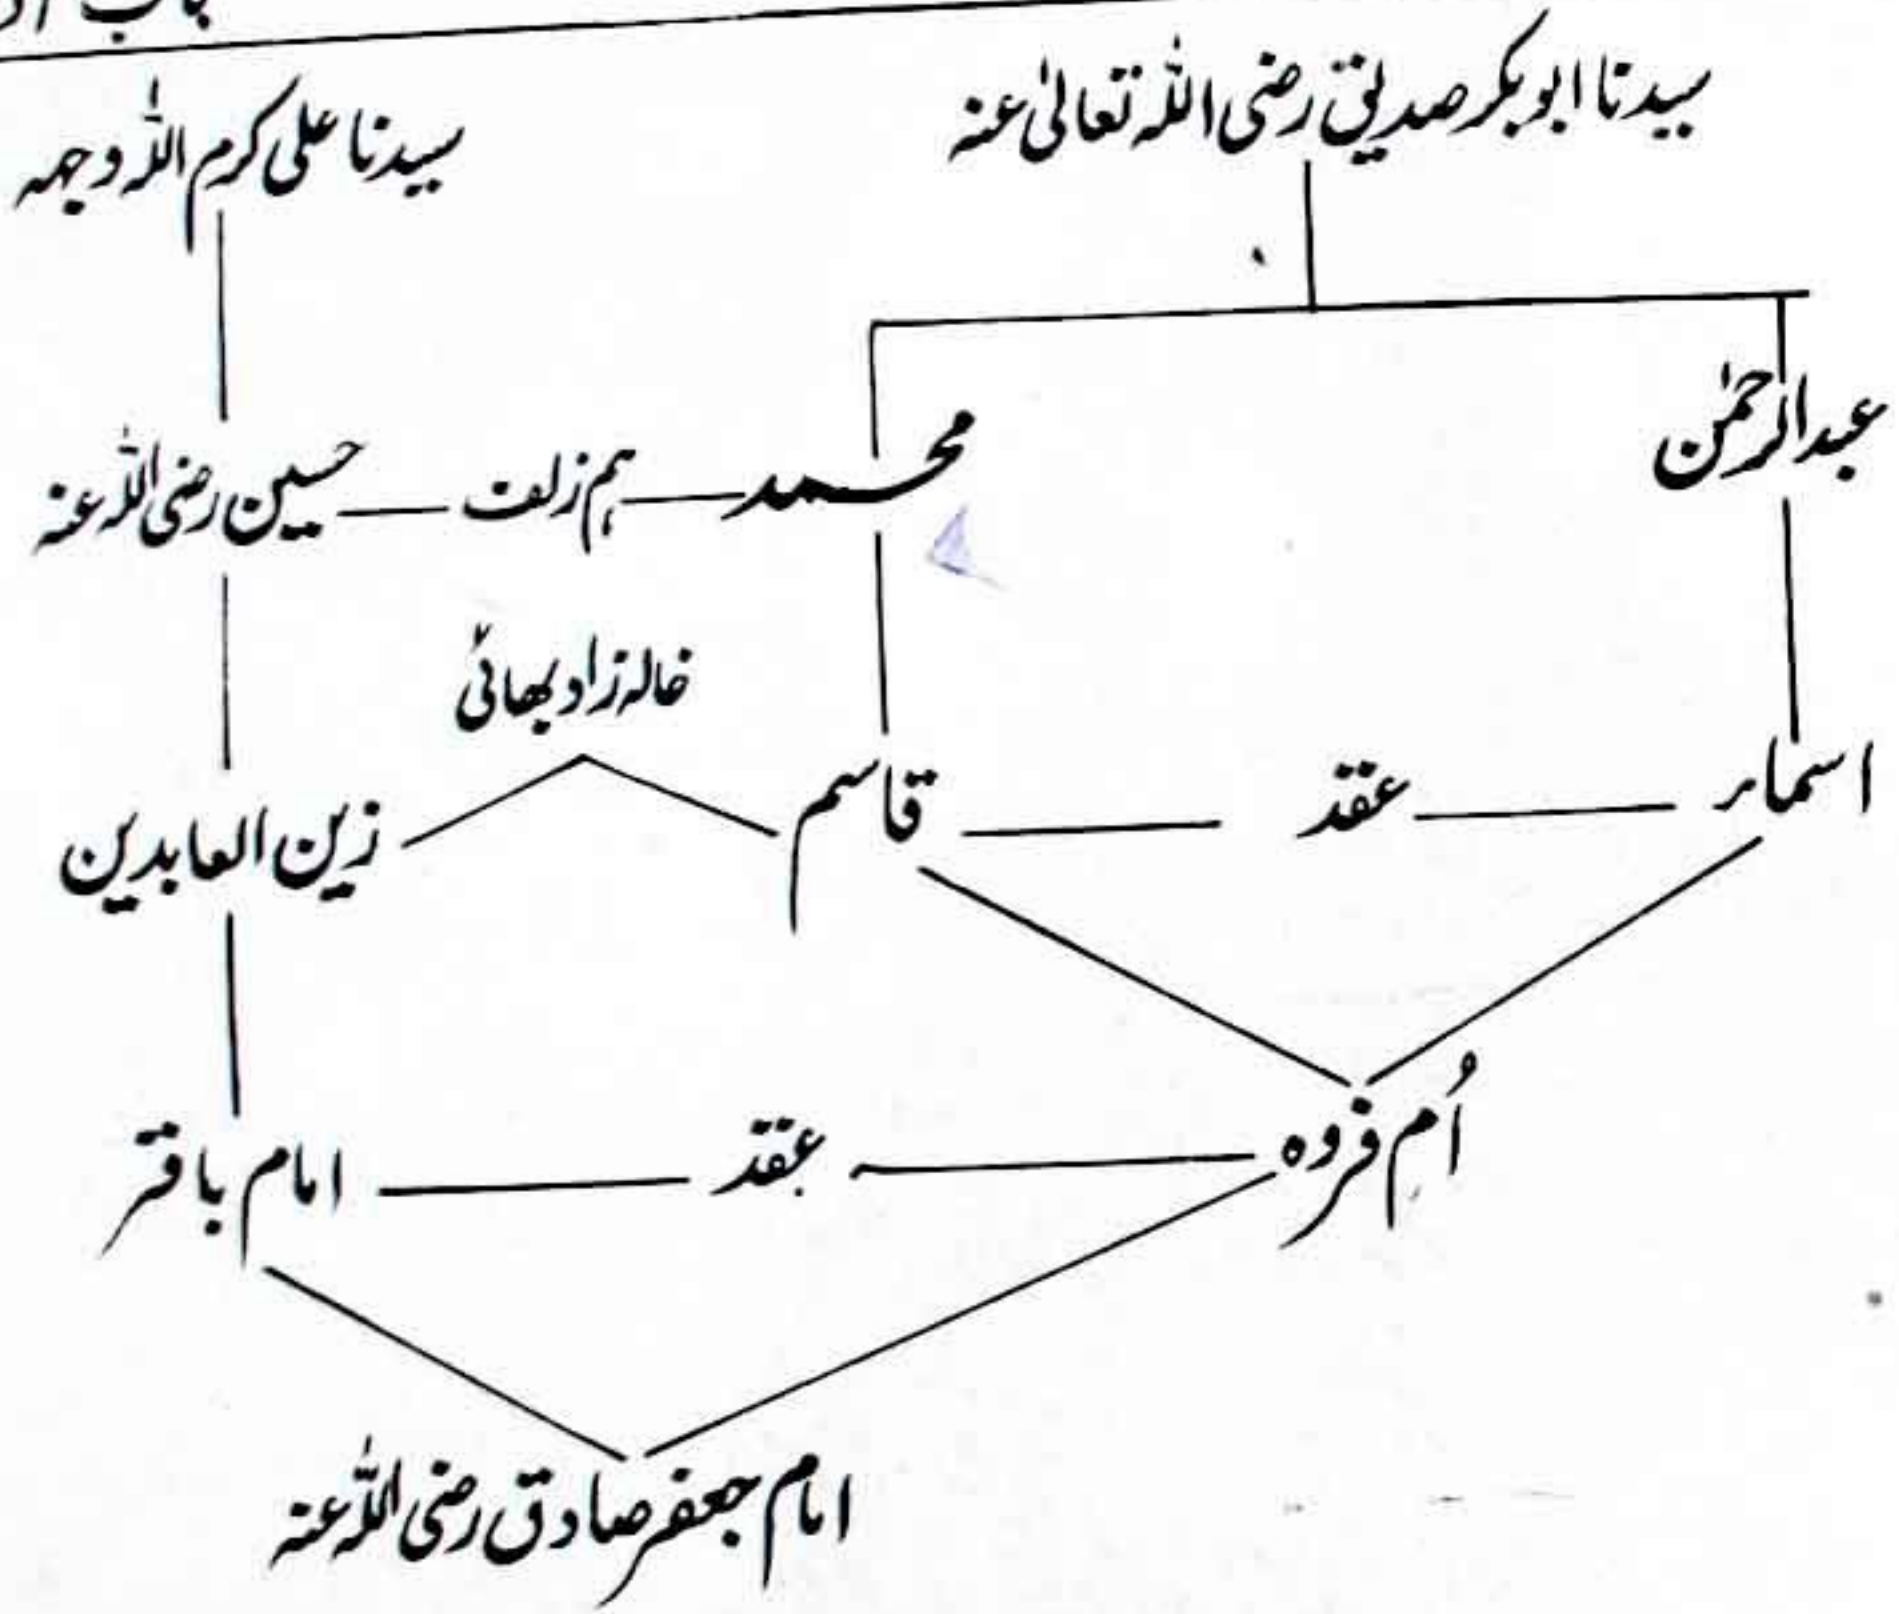 سیدنا ابوبکر صدیق رضی اللہ تعالیٰ عنہ
سیدنا علی کرم اللہ وجہہ
عبدالرحمٰن
محمد
ہم زلف
حسین رضی اللہ عنہ
خالہ زاد بھائی
اسماء
عقد
قاسم
زین العابدین
اُم فروہ
عقد
امام باقر
امام جعفر صادق رضی اللہ عنہ